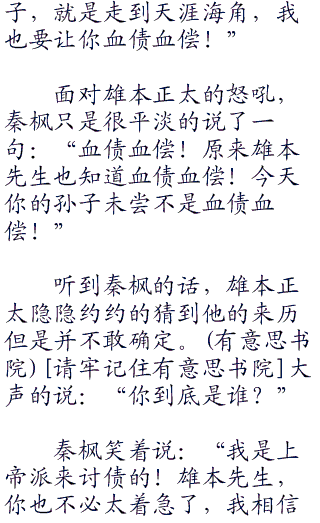 子，就是走到天涯海角，我
也要让你血债血偿！”
面对雄本正太的怒吼，
秦枫只是很平淡的说了一
句：“血债血偿！原来雄本
先生也知道血债血偿！今天
你的孙子未尝不是血债血
偿！”
听到秦枫的话，雄本正
太隐隐约约的猜到他的来历
但是并不敢确定。(有意思书
院)[请牢记住有意思书院]大
声的说：“你到底是谁？”
秦枫笑着说：“我是上
帝派来讨债的！雄本先生，
你也不必太着急了，我相信